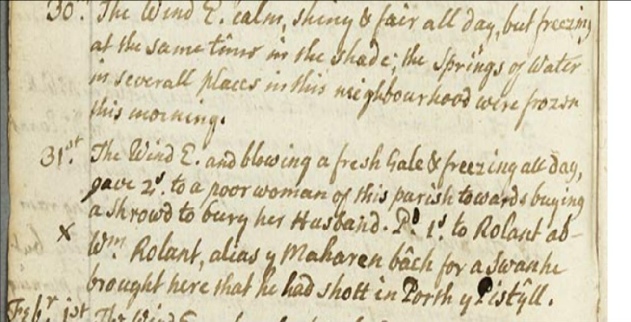 30. The Wind E. calm, shiny & fair all day, but freezing
at the same time in the shade; the springs of water
in severall places in this neighbourhood were frozen
this morning.
31st. The Wind E. and blowing a fresh Gale & freezing all day,
gave 2s. to a poor woman of this parish towards buying
a Shrowd to bury her Husband. Pd. 1s. to Rolant ab-
x Wm. Rolant, alias y Maharen bâch for a Swanhe
brought here that he had shott in Porth y Pistyll.
Febr. 1st The Wind E.